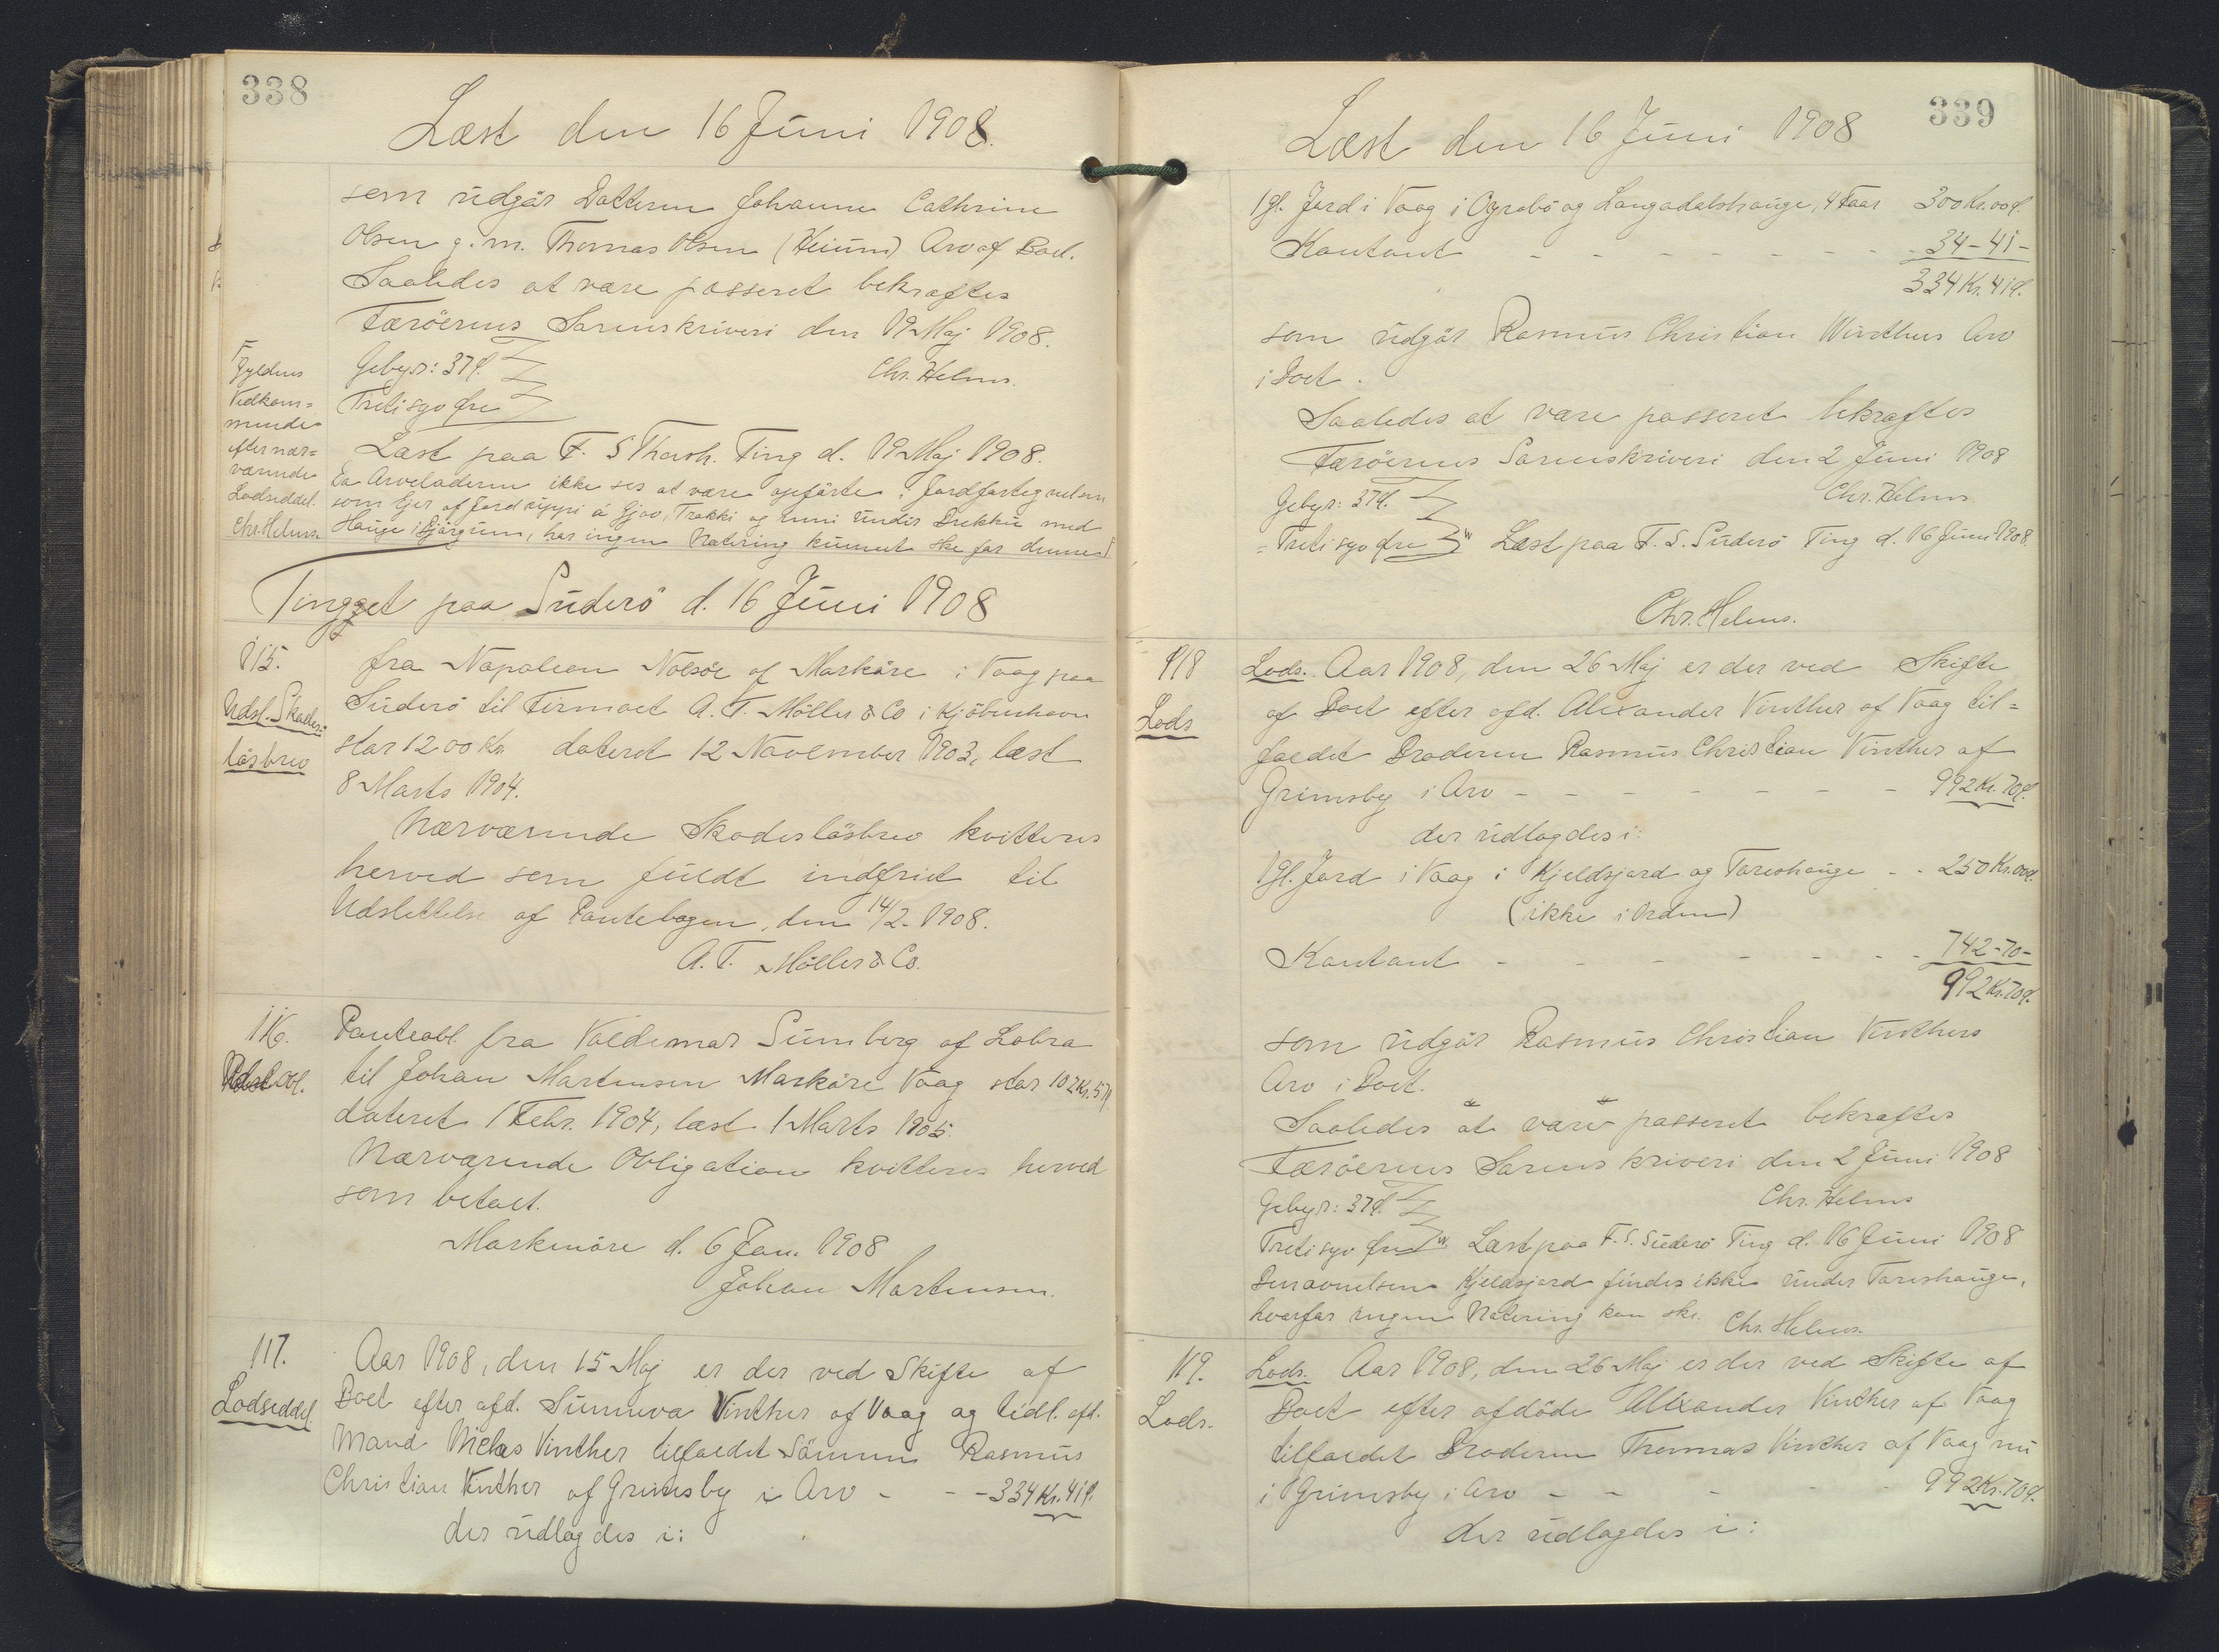 338
Læst den 16 Juni 1908.
som udgår Datteren Johanne Cathrine
Olsen g. m. Thomas Olsen (Heium) Arv af Boet.
Saaledes at være passeret bekræftes
Færöernes Sorenskriveri den 19 Maj 1908.
Gebyr: 37 Ø. Chr. Helms.
Tretisyv Øre
Læst paa F. S Thorsh. Ting d. 19 Maj 1908.
Da Arveladeren ikke ses at være opført i Jordfortegnelsen
som Ejer af Jord uppi á Gjov, Trakki og inni undir Brekku med
Hauge i Bjørgum, har ingen Notering kunnet ske for dennes
Jyldens
Vedkom=
mende
efter nær=
værende
Lodseddel.
Chr. Helms.
Tinget paa Suderö d. 16 Juni 1908
115.
Udsl. Skades=
løsbrev
fra Napoleon Nolsöe af Marköre i Vaag paa
Suderö til Firmaet A. T. Möller & Co i Kjöbenhavn
stor 1200 Kr. dateret 12 November 1903, læst
8 Marts 1904.
Nærværende Skadesløsbrev kvitteres
herved som fuldt indfriet til
Udslettelse af Pantebogen, den 14/2. 1908.
A. T. Möller & Co.
116.
Obl.
Panteobl. fra Valdemar Sumberg af Lobra
til Johan Martensen Marköre Vaag stor 107 Kr. 57 Ø.
dateret 1 Febr. 1904, læst 1 Marts 1905.
Nærværende Obligation kvitteres herved
som betalt.
Markenöre d. 6 Jan. 1908
Johan Martensen.
117.
Lodseddel.
Aar 1908, den 15 Maj er der ved Skifte af
Boet efter afd. Sunneva Vinther af Vaag og tidl. afd.
Mand Niclas Vinther tilfaldet Sönnen Rasmus
Christian Vinther af Grimsby i Arv - - - 334 Kr. 41 Ø.
der udlagdes i:
339
Læst den 16 Juni 1908
1 gl. Jord i Vaag i Ograbö og Langadalshauge, 4 Faar 300 Kr. 00 Ø.
Kontant - - - - - - - - 34 - 41 -
334 Kr. 41 Ø.
som udgår Rasmus Christian Vinthers Arv
i Boet.
Saaledes at være passeret bekræftes
Færöernes Sorenskriveri den 2 Juni 1908
Gebyr: 37 Ø. Chr. Helms.
= Tretisyv Øre Læst paa F. S. Suderö Ting d. 16 Juni 1908.
Chr. Helms.
118
Lods
Lods. Aar 1908, den 26 Maj er der ved Skifte
af Boet efter afd. Alexander Vinther af Vaag til=
faldet Broderen Rasmus Christian Vinther af
Grimsby i Arv - - - - - - - 992 Kr. 70 Ø.
der udlagdes i:
1 gl. Jord i Vaag i Kjeldsjord og Toreshauge - - 250 Kr. 00 Ø.
(ikke i Orden)
Kontant - - - - - - - 742 - 70 -
992 Kr. 70 Ø.
som udgår Rasmus Christian Vinthers
Arv i Boet.
Saaledes at være passeret bekræftes
Færöernes Sorenskriveri den 2 Juni 1908
Gebyr: 37 Ø. Chr. Helms
Tretisyv Øre Læst paa F. S. Suderö Ting d. 16 Juni 1908
Benævnelsen Kjeldsjord findes ikke under Toreshauge,
hvorfor ingen Notering kan ske. Chr. Helms.
119.
Lods.
Lods. Aar 1908, den 26 Maj er der ved Skifte af
Boet efter afdöde Alexander Vinther af Vaag
tilfaldet Broderen Thomas Vinther af Vaag nu
i Grimsby i Arv - - - - 992 Kr. 70 Ø.
der udlagdes i: